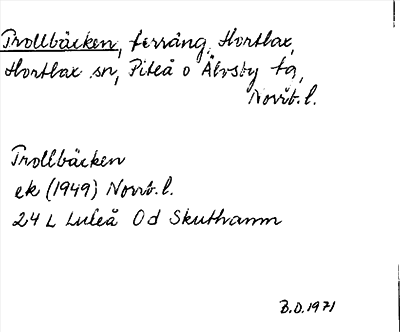 Trollbäcken, terräng, Hortlax,
Hortlax sn, Piteå o Älvsby tg,
Norrb.l.
Trollbäcken
ek (1949) Norrb.l.
24 L Luleå 0d Skuthamn
B.D.1971